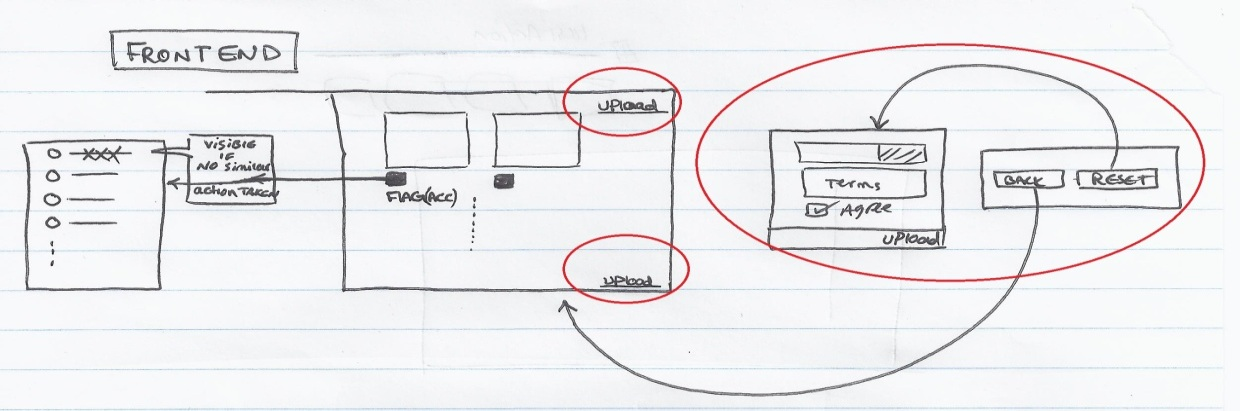 FRONT END
UPload
XXX
VISIBLE
IF
NO Similar
action TAKEN
FlAG(ACC)
UPload
Terms
AGREE
UPload
BACK
RESET